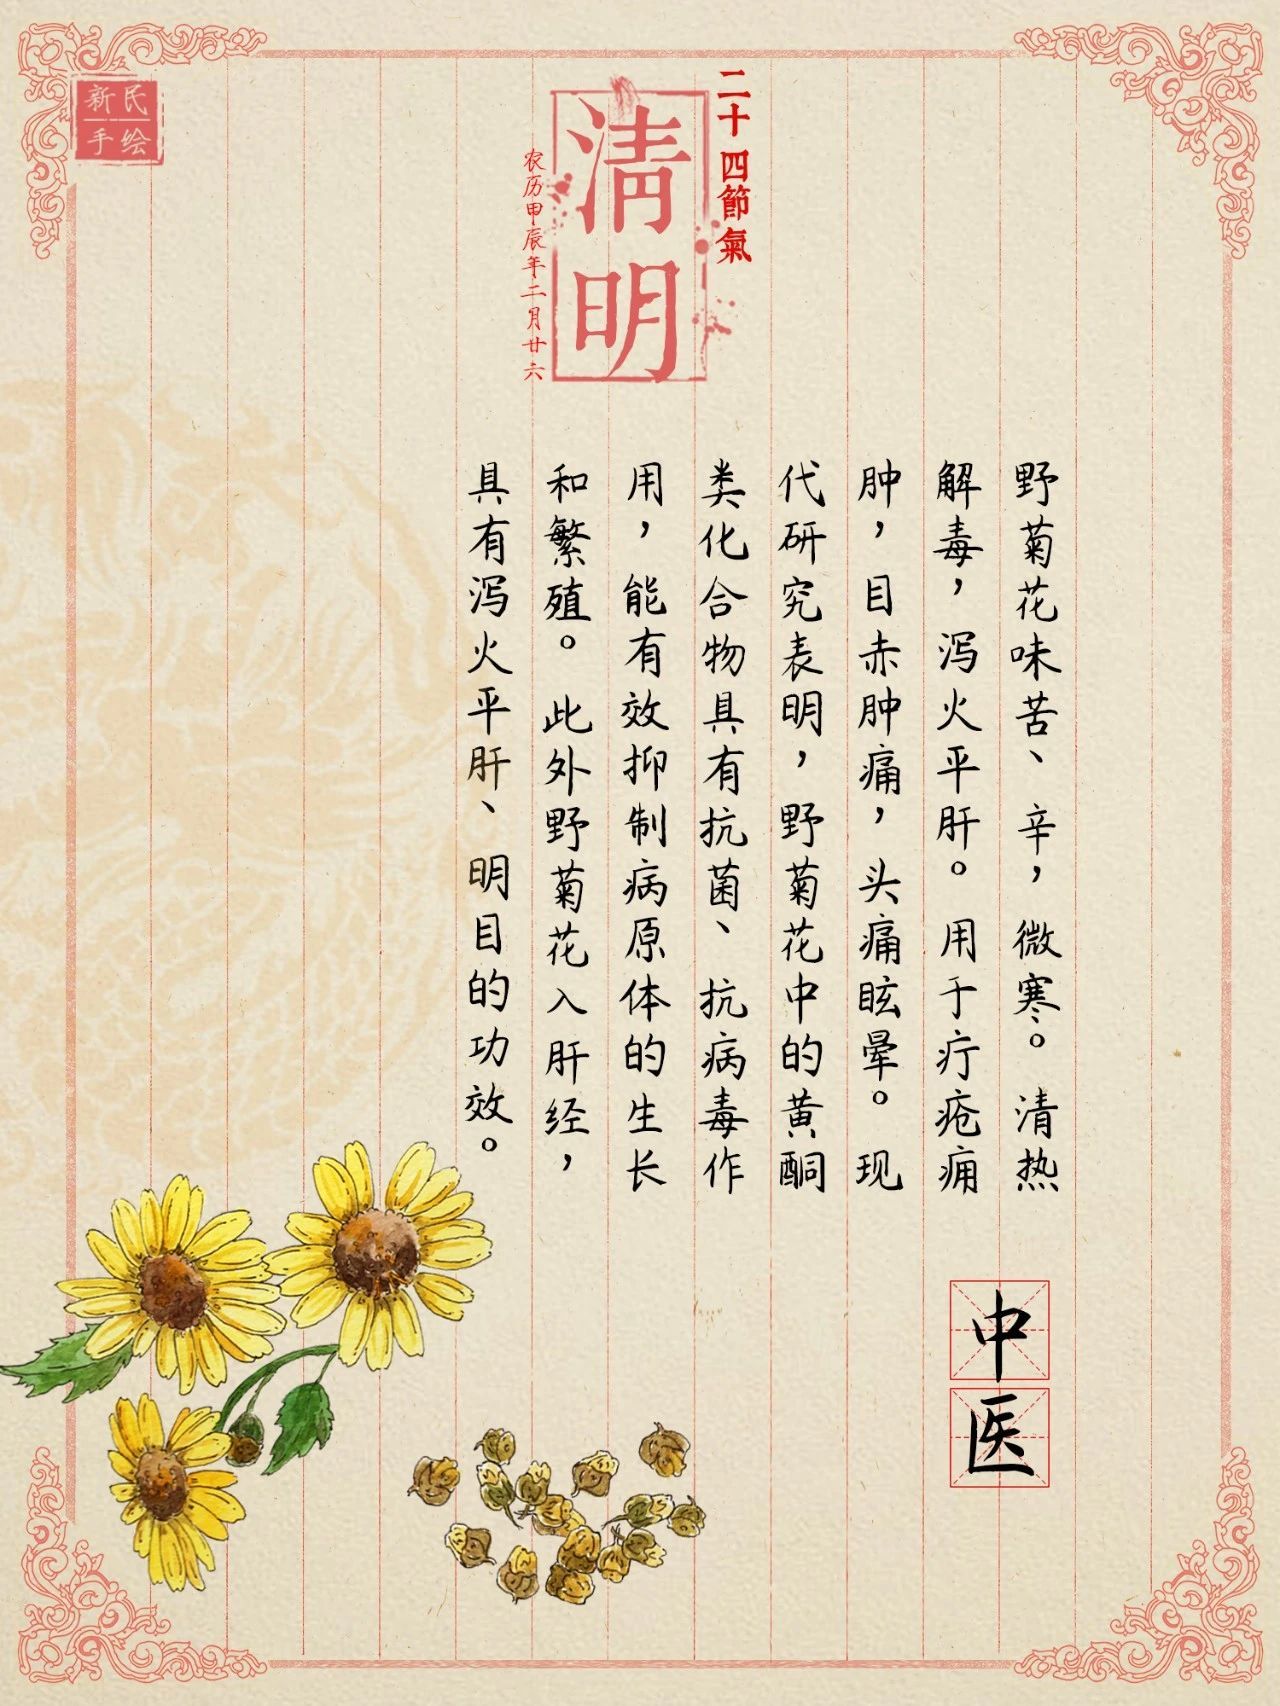 新民
手绘
二十四節氣
清明
农历甲辰年二月廿六
野菊花味苦、辛，微寒。清热
解毒，泻火平肝。用于疔疮痈
肿，目赤肿痛，头痛眩晕。现
代研究表明，野菊花中的黄酮
类化合物具有抗菌、抗病毒作
用，能有效抑制病原体的生长
和繁殖。此外野菊花入肝经，
具有泻火平肝、明目的功效。
中医